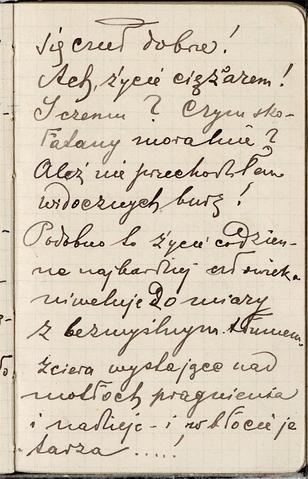 się czuł dobrze!
Ach, życie ciężarem!
I czemu? Czym sko-
łatany moralnie?
Ależ nie przechodziłem
widocznych burz!
Podobno to życie codzien-
ne najbardziej człowieka
niweluje do miary
z bezmyślnym tłumem.
ściera wystające nad
motłoch pragnienia
i nadzieje - i w błocie je
tarza .....!